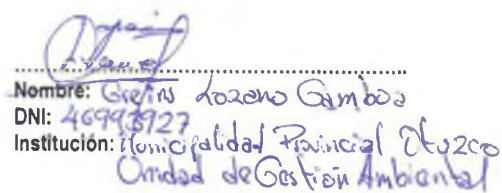 Nombre: Lozano Gamboa
DNI:
Institución: Municipalidad Provincial Otuzco
Unidad de Gestión Ambiental